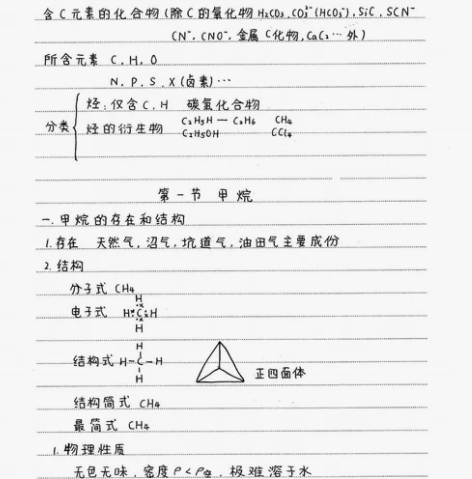 含C元素的化合物(除C的氧化物 H₂CO₃, CO₃²⁻(HCO₃⁻), SiC, SCN⁻
CN⁻, CNO⁻, 金属C化物, CaC₂…外)
所含元素 C, H, O
N, P, S, X(卤素)…
分类
烃: 仅含C, H 碳氢化合物
烃的衍生物 C₂H5H — C₂H6 CH4
C₂H5OH CCl4
第一节 甲烷
一. 甲烷的存在和结构
1. 存在 天然气, 沼气, 坑道气, 油田气主要成份
2. 结构
分子式 CH4
H
电子式 H C H
H
H
结构式 H-C-H 正四面体
H
结构简式 CH4
最简式 CH4
1. 物理性质
无色无味, 密度ρ<ρ空, 极难溶于水